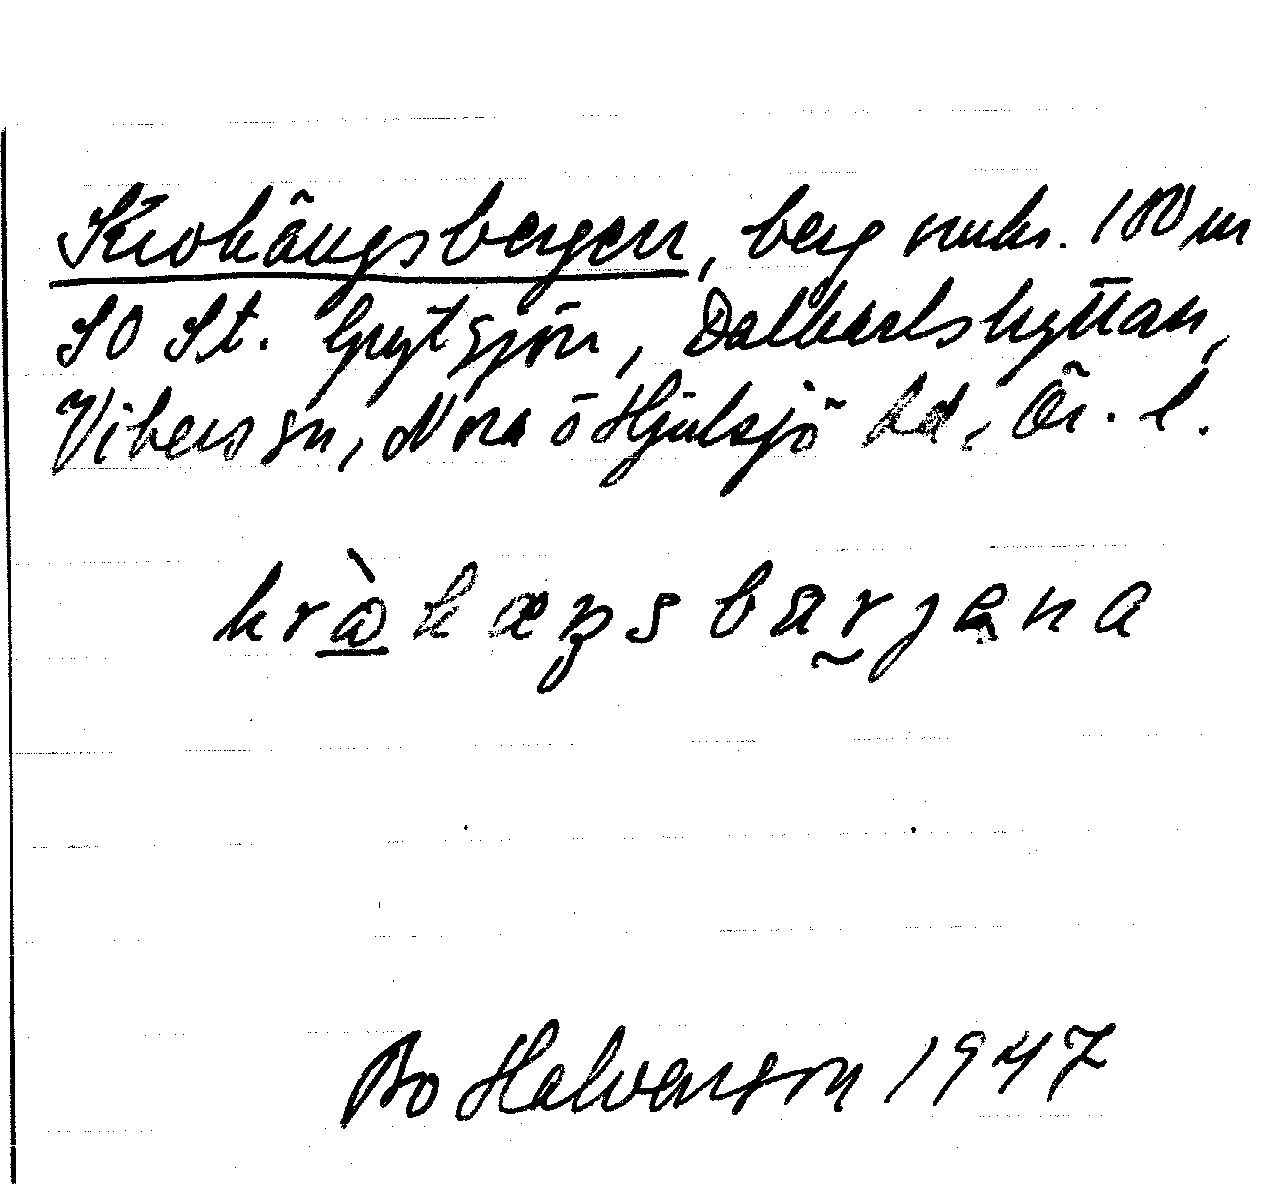 Krokängsbergen, berg omkr. 100 m
SO St. Grytsjön, Dalkarlshyttan,
Vikers sn, Nora o Hjulsjö hd, Ör. l.
kràkæŋsbarjena
Bo Halvarson 1947